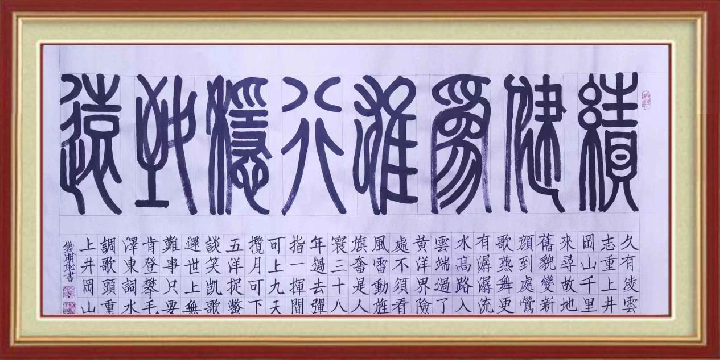 績健為雄行穩致遠
久有凌雲
志重上井
岡山千里
來尋故地
舊貌變新
顏到處鶯
歌燕舞更
有潺潺流
水高路入
雲端過了
黃洋界險
處不須看
風雷動旌
旗奮是人
寰三十八
年過去彈
指一揮間
可上九天
攬月可下
五洋捉鱉
談笑凱歌
還世上無
難事只要
肯登攀毛
澤東詞水
調歌頭重
上井岡山